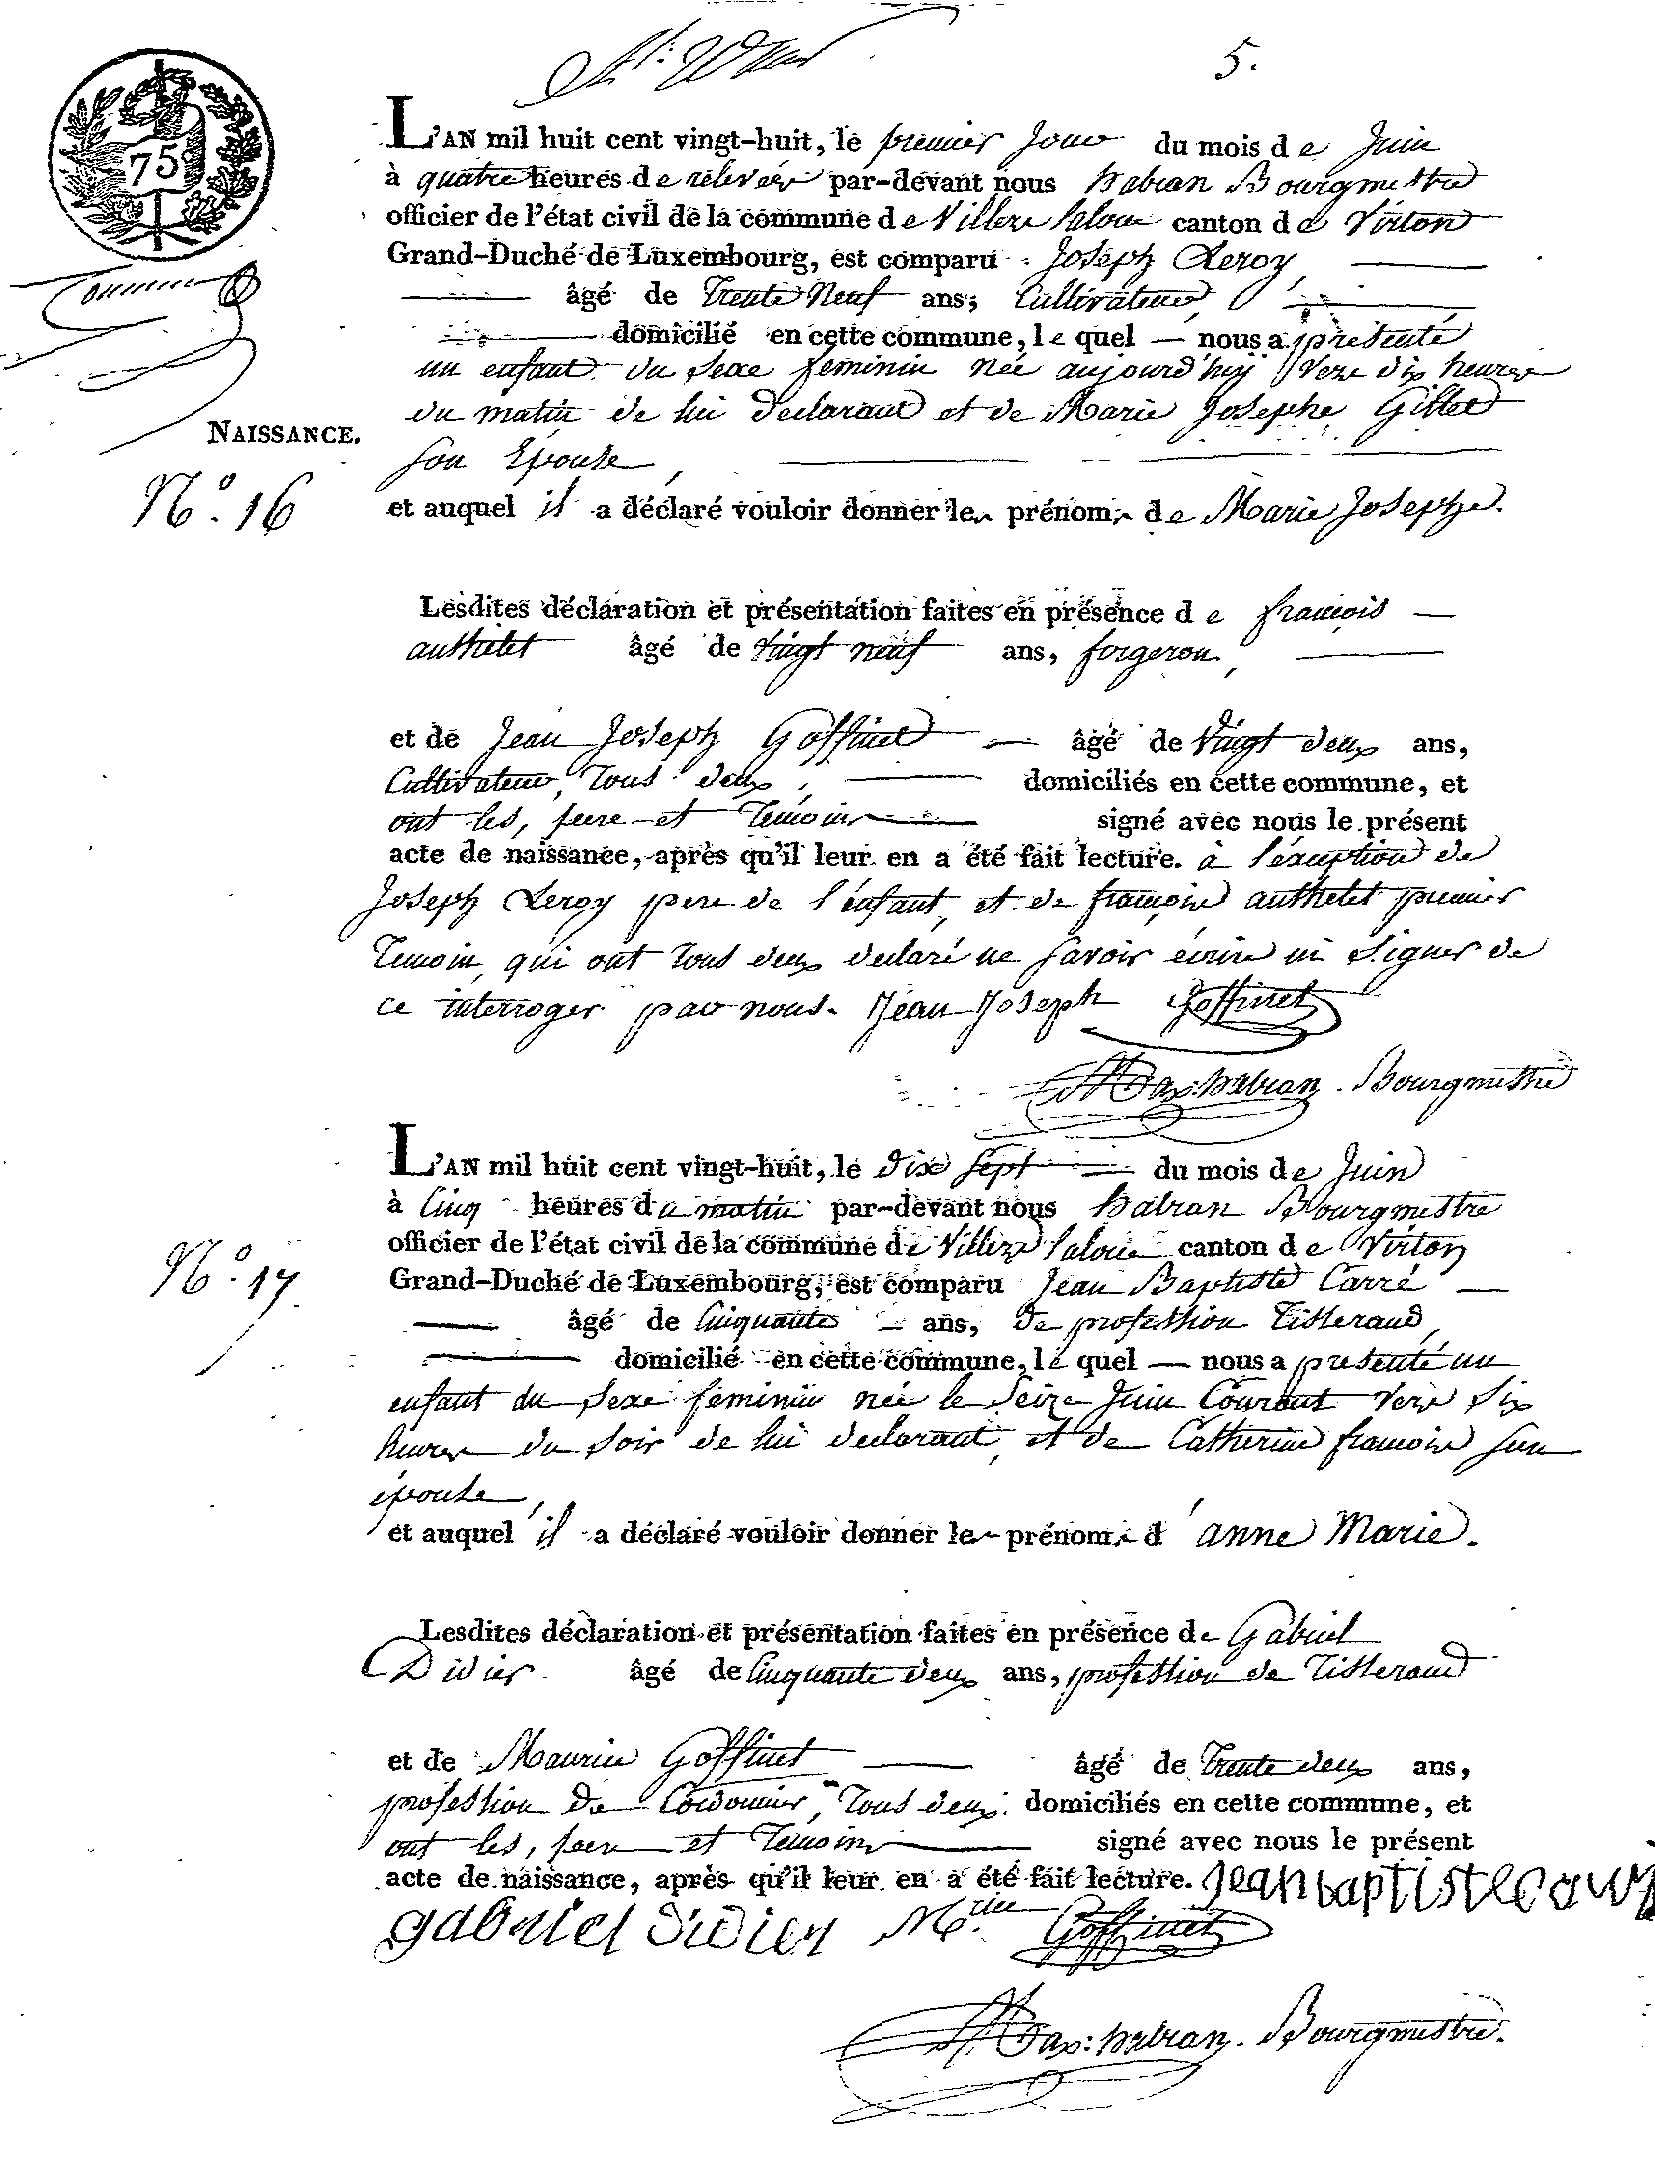 5.
75
L'AN mil huit cent vingt-huit, le premier Jour du mois de Juin
à quatre heures de relevée par-devant nous habran Bourgmestre
officier de l'état civil de la commune de Villers laloue canton de Virton
Grand-Duché de Luxembourg, est comparu Joseph Leroy,
âgé de Trente Neuf ans, Cultivateur,
domicilié en cette commune, le quel — nous a presenté
un enfant du sexe feminin née aujourd'huy vers dix heures
du matin de lui declarant et de Marie Josephe Gillet
NAISSANCE.
son Epouse,
N.° 16
et auquel il a déclaré vouloir donner les prénoms de Marie Josephe.
Lesdites déclaration et présentation faites en présence de françois —
authelet âgé de vingt neuf ans, forgeron,
et de Jean Joseph Goffinet — âgé de Vingt deux ans,
Cultivateur, Tous deux, domiciliés en cette commune, et
ont les, pere et Temoins signé avec nous le présent
acte de naissance, après qu'il leur en a été fait lecture. à l'exception de
Joseph Leroy pere de l'enfant, et de françois authelet premier
Temoin, qui ont tous deux declaré ne savoir écrire ni signer de
ce interroger par nous. Jean Joseph Goffinet
Max: habran. Bourgmestre
L'AN mil huit cent vingt-huit, le Dix sept — du mois de Juin
à Cinq heures du matin par-devant nous habran Bourgmestre
officier de l'état civil de la commune de Villers laloue canton de Virton
N.° 17
Grand-Duché de Luxembourg, est comparu Jean Baptiste Carré —
âgé de Cinquante — ans, de profession Tisserand,
domicilié en cette commune, le quel — nous a presenté un
enfant du sexe feminin née le Seize Juin Courant vers six
heures du soir de lui declarant, et de Catherine françois son
épouse,
et auquel il a déclaré vouloir donner les prénoms d'anne Marie.
Lesdites déclaration et présentation faites en présence de Gabriel
Didier âgé de Cinquante deux ans, profession de Tisserand
et de Maurice Goffinet âgé de Trente deux ans,
profession de Cordonnier, Tous deux domiciliés en cette commune, et
ont les, pere et Temoins signé avec nous le présent
acte de naissance, après qu'il leur en a été fait lecture. jean baptiste carré
gabriel didier M.rice Goffinet
Max: habran. Bourgmestre.